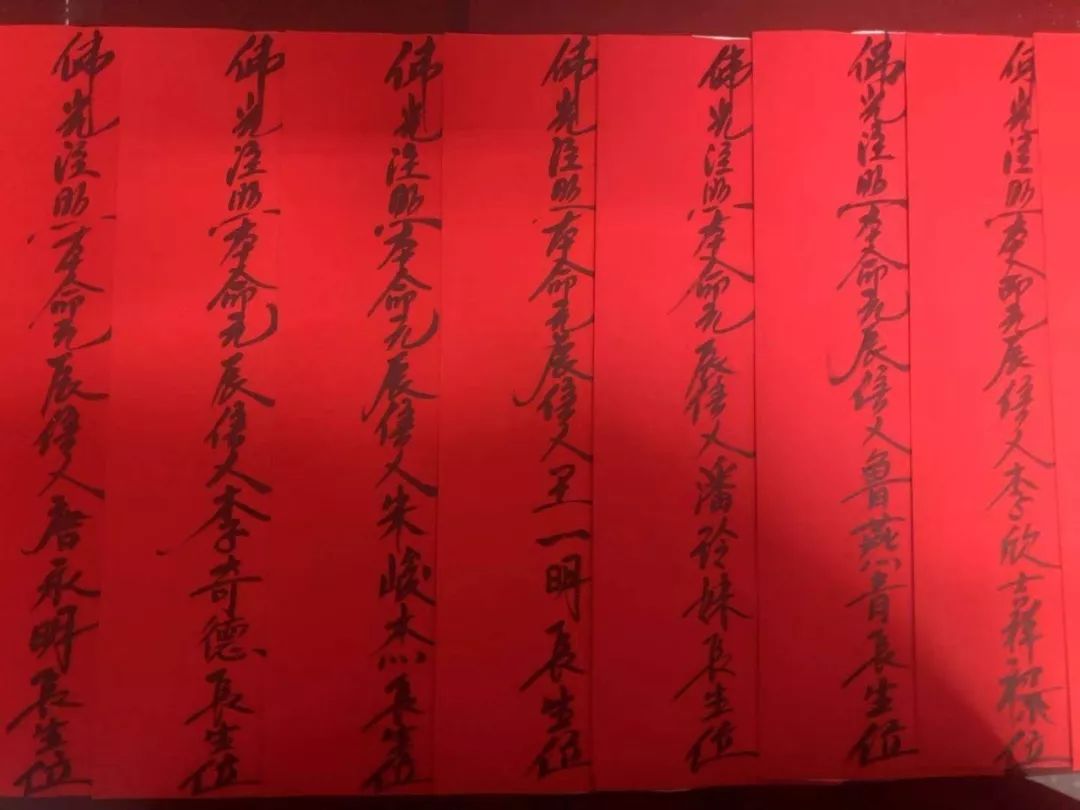 佛光注照本命元辰信人李欣吉祥禄位
佛光注照本命元辰信人鲁燕青长生位
佛光注照本命元辰信人潘玲妹长生位
佛光注照本命元辰信人王一明长生位
佛光注照本命元辰信人朱峻杰长生位
佛光注照本命元辰信人李奇德长生位
佛光注照本命元辰信人唐永明长生位